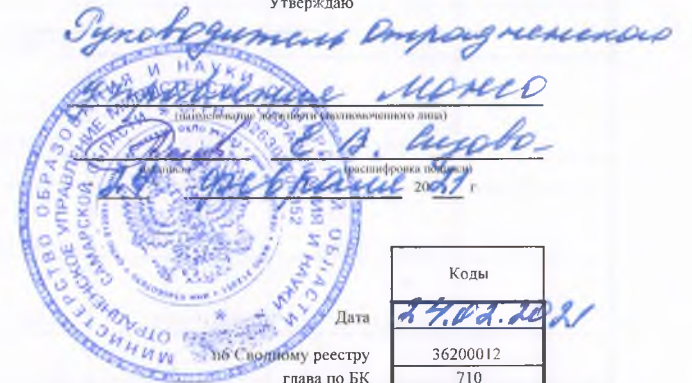 Утверждаю
Руководитель Отрадненского
управления МОиНСО
(наименование должности уполномоченного лица)
Е. В. Сизова
(подпись) (расшифровка подписи)
24 февраля 2021 г.
МИНИСТЕРСТВО ОБРАЗОВАНИЯ И НАУКИ САМАРСКОЙ ОБЛАСТИ
ОТРАДНЕНСКОЕ УПРАВЛЕНИЕ МИНИСТЕРСТВА ОБРАЗОВАНИЯ И НАУКИ САМАРСКОЙ ОБЛАСТИ
Коды
Дата 24.02.2021
по Сводному реестру 36200012
глава по БК 710